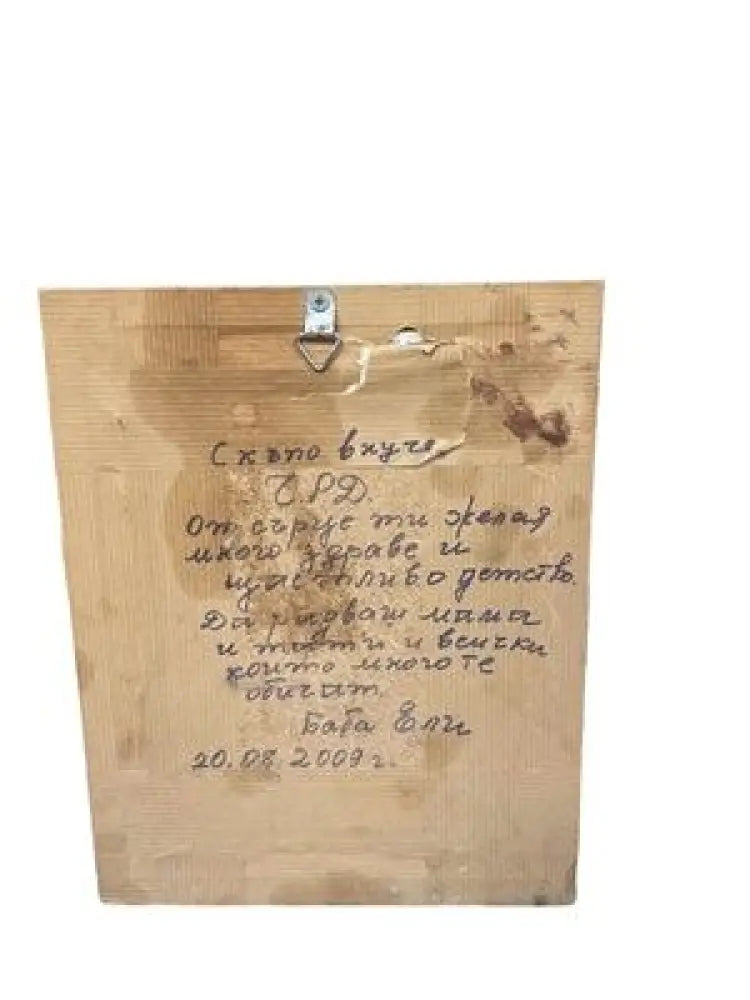 Скъпо внуче
Ч.Р.Д.
От сърце ти желая
много здраве и
щастливо детство.
Да радваш мама
и тати и всички
които много те
обичат.
Баба Ели
20.08.2009 г.